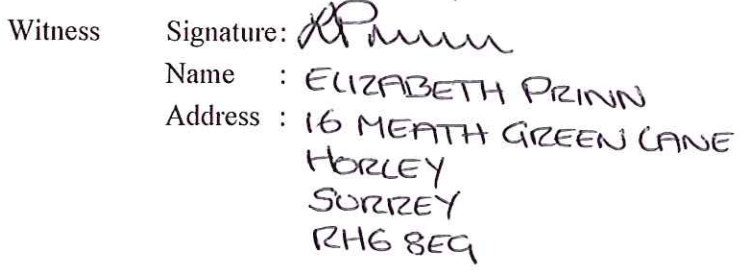 Witness Signature:
Name : ELIZABETH PRINN
Address : 16 MEATH GREEN LANE
HORLEY
SURREY
RH6 8EG